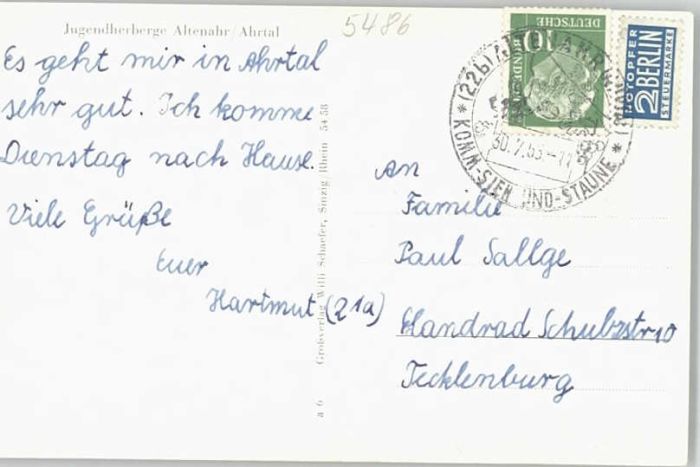 Jugendherberge Altenahr/Ahrtal
5486
Es geht mir in Ahrtal
sehr gut. Ich komme
Dienstag nach Hause.
Viele Grüße
Euer
Hartmut
Großverlag Willi Schaefer, Sinzig/Rhein 54 58
a 6
10
DEUTSCHE
BUNDES
NOTOPFER
2 BERLIN
STEUERMARKE
* (22b)
30.7.63
* KOMM-SIEH UND-STAUNE *
An
Familie
Paul Sallge
(21a) Landrad Schultzstr 10
Tecklenburg